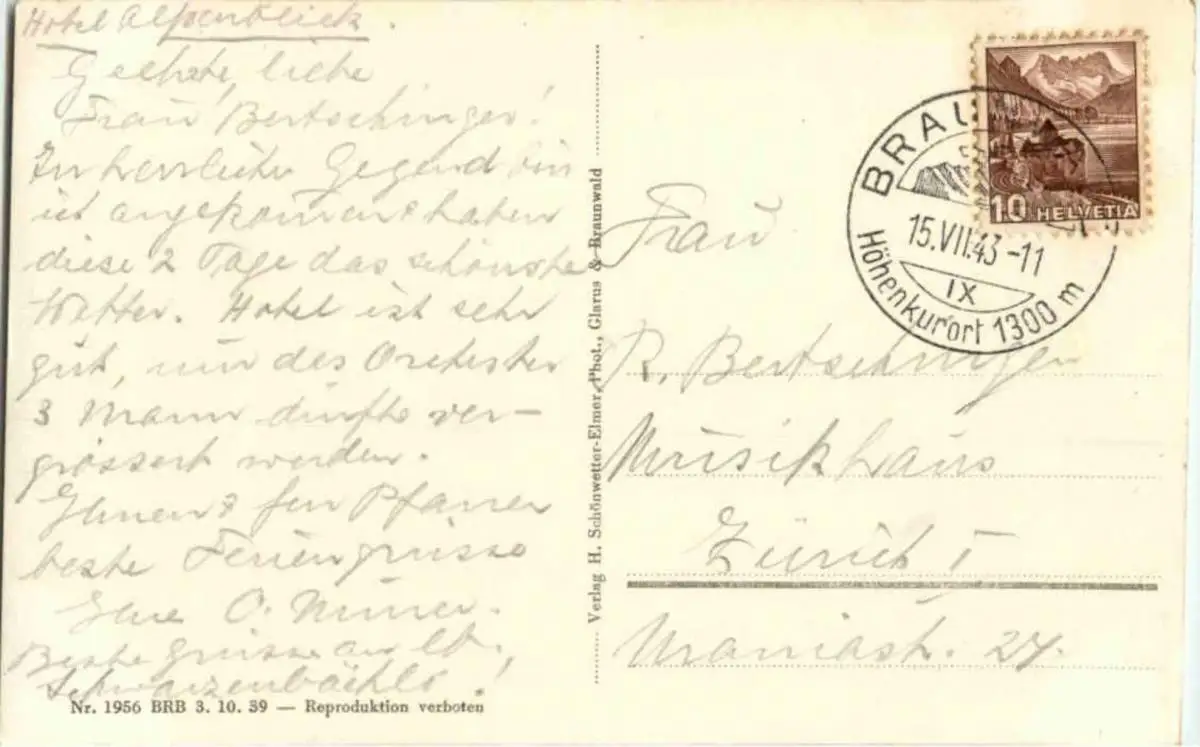 Hotel Alpenblick.
Geehrte, liebe
Frau Bertschinger!
In herrlicher Gegend bin
ich angekommen & haben
diese 2 Tage das schönste
Wetter. Hotel ist sehr
gut, nur das Orchester
3 Mann dürfte ver-
grössert werden.
Ihnen &
beste Feriengrüsse
Ihre O.
Beste Grüsse an
Schwarzenbächlis!
Nr. 1956 BRB 3. 10. 39 — Reproduktion verboten
Verlag H. Schönwetter-Elmer, Phot., Glarus & Braunwald
BRAU
15.VII.43-11
IX
Höhenkurort 1300 m
10 HELVETIA
Frau
R. Bertschinger
Musikhaus
Zürich I
Uraniastr. 24.